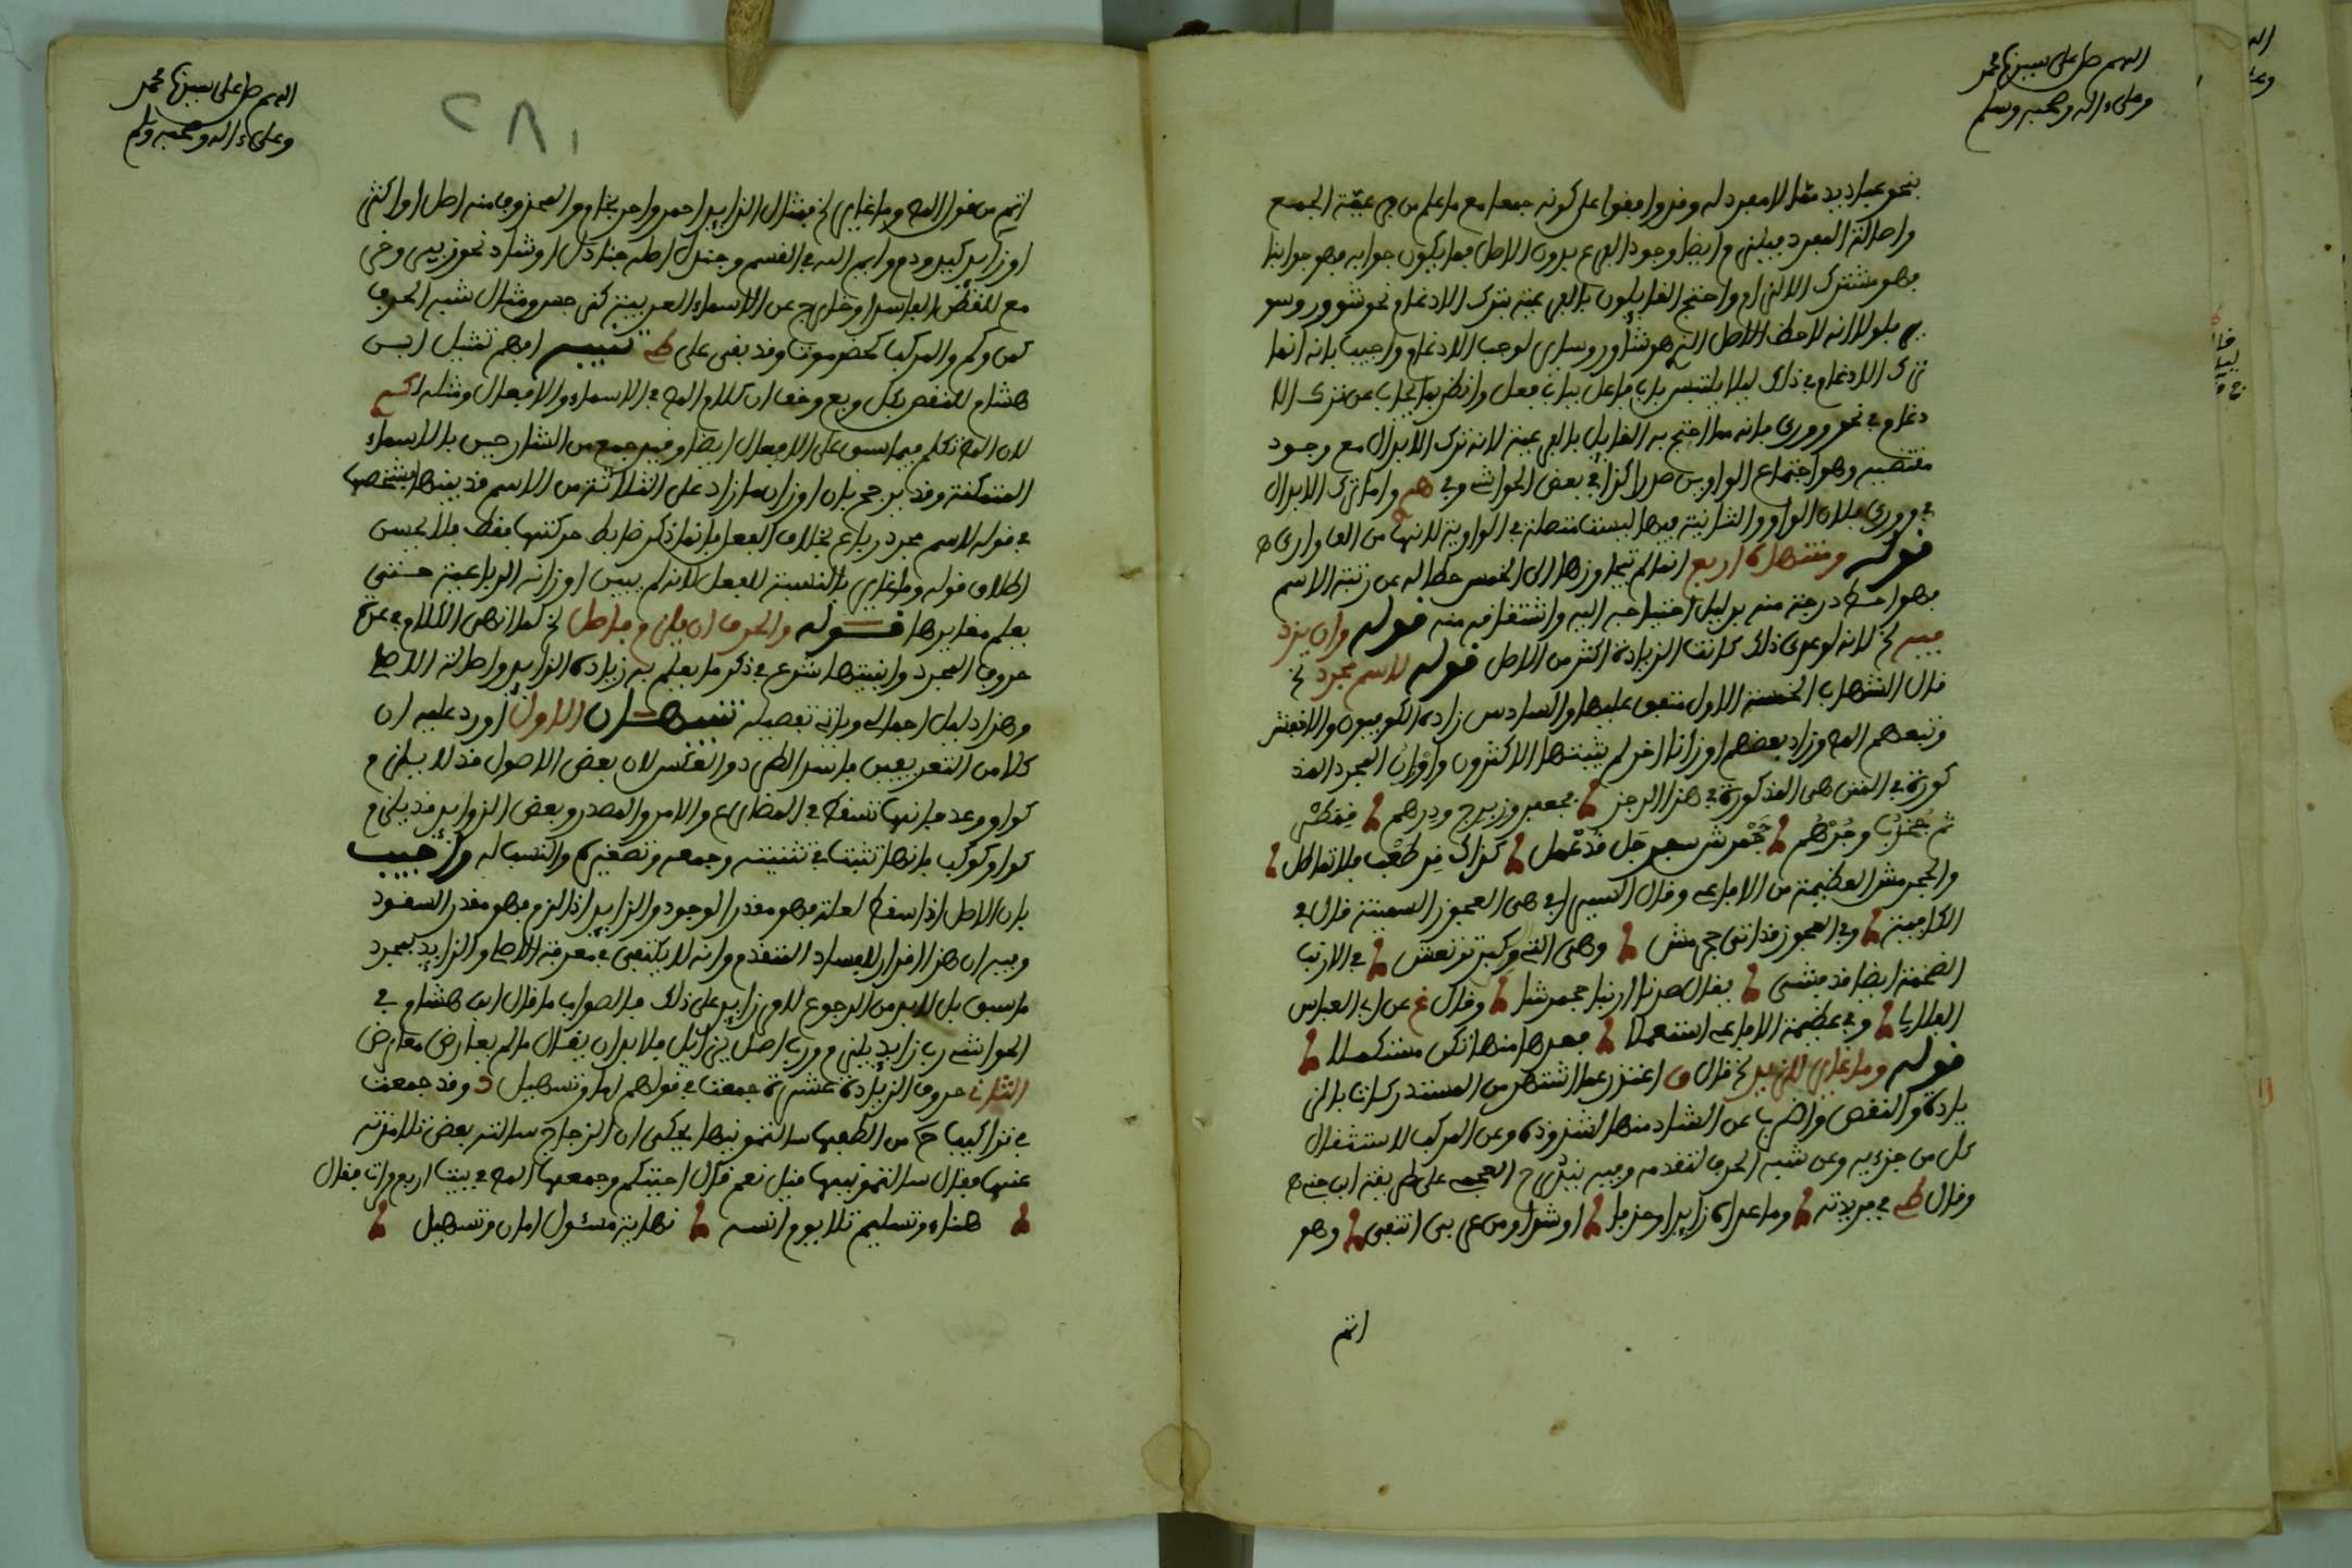 اللهم صل على سيدنا محمد
وعلى ءاله وصحبه وسلم
نحو عباديد مما لا مفرد له وقد وافقوا على كونه جمعا مع ما علم من فرعية الجمع
واصالة المفرد فيلزم ايضا وجود الفرع بدون الاصل فما يكون جوابه فهو جوابنا
فهو مشترك الالزام واحتج القايلون بالفرعية بترك الادغام نحو شوور وسو
ير فلولا انه لاحظ الاصل الذي هو شاور وساير لوجب الادغام واجيب بانه انما
ترك الادغام في ذلك ليلا يلتبس باب فاعل بباب فعل وانظر بما يجاب عن ترك الا
دغام في نحو ووري فانه مما احتج به القايل بالفرعية لانه ترك الابدال مع وجود
مقتضيه وهو اجتماع الواوين صدرا كذا في بعض الحواشي وفي واما ترك الابدال
في ووري فلان الواو والثانية فيها ليست متصلة في الواوية لانها من الف وارى ه
قوله ومنتهاه اربع انما لم يتجاوزها الى الخمس حطا له عن رتبة الاسم
فهو احط درجة منه بدليل احتياجه اليه واشتقاقه منه قوله وان يزد
فيه لخ لانه لو عرى ذلك كانت الزيادة اكثر من الاصل قوله لاسم مجرد لخ
قال الشهاب الخمسة الاول متفق عليها والسادس زاده الكوفيون والاخفش
وتبعهم المص وزاد بعضهم اوزانا اخر لم يثبتها الاكثرون واوزان المجرد المذ
كورة في المتن هي المذكورة في هذا الرجز جعفر وزبرج ودرهم فقمطر
ثم جخدب وجرهم جحمرش سفرجل قذعمل كذاك قرطعب فلا تماطل
والجحمرش العظيمة من الافاعي وقال السيرافي هي العجوز السمينة قال في
الكافية وفي العجوز قد اتى جحمرش وهي التي وكبر ترتعش في الارنب
الضخمة ايضا قد فشى يقال صدنا ارنبا جحمرشا وقال غ عن ابي العباس
الملايا وفي عظيمة الافاعي استعملا فعدها منها تكن مستكملا
قوله وما غاير للزيد لخ قال ق اعتذر عما اشتهر من المستدركات بالز
يادة والنقص واضرب عن الشاذ منها لشذوذه وعن المركب لاستثقال
كل من جزءيه وعن شبه الحرف لتقدمه وفيه يندرج العجمي على طريقة ابن جني ه
وقال في فريدته وما عداه زايدا وحذفا او شذ او من عربي انتفى وهو
اتم
اللهم صل على سيدنا محمد
وعلى ءاله وصحبه وسلم
٢٨١
اتم من قول المص وما غاير لخ فمثال الزايد احمر واحرنجام والمحذوف منه اصل او اكثر
او زايد كيد ودم وايم الله في القسم وجندل اصله جنادل او شاذ نحو زيبر وخر
مع للنقص الفاسد او خارج عن الاسماء العربية كنرجس ومثال شبه الحرف
كمن وكم والمركب كحضرموت وقد بقي على تنبيه افهم تمثيل ابن
هشام للنقص بكل وبع وخف ان كلام المص في الاسماء والافعال ومثله
لان المص تكلم فيما سبق على الافعال ايضا وقيد جمع من الشارحين بالاسماء
المتمكنة وقد يرجح بان اوزان ما زاد على الثلاثة من الاسم قد بينها بشخصها
في قوله لاسم مجرد رباع بخلاف الفعل فانما ذكر ضابط حركتها فقط فلا يحسن
اطلاق قوله وما غاير بالنسبة للفعل لانه لم يبين اوزانه الرباعية حتى
يعلم مغايرها قوله والحرف ان يلزم فاصل لخ لما انهى الكلام في عدة
حروف المجرد وابنيتها شرع في ذكر ما يعلم به زيادة الزايد واصالة الاصل
وهذا دليل اجمالي وياتي تفصيله تنبيهان الاول اورد عليه ان
كلا من التعريفين فاسد الطرد والعكس لان بعض الاصول قد لا يلزم
كواو وعد فانها تسقط في المضارع والامر والمصدر وبعض الزوايد قد يلزم
كواو كوكب فانها تثبت في تثنيته وجمعه وتصغيره والنسب اليه واجيب
بان الاصل اذا سقط لعلة فهو مقدر الوجود والزايد اذا لزم فهو مقدر السقوط
وفيه ان هذا اقرار للفساد المتقدم وانه لا يكتفى في معرفة الاصل والزايد بمجرد
ما سبق بل لا بد من الرجوع لامر زايد على ذلك فالصواب ما قال ابن هشام في
الحواشي رب زايد يلزم ورب اصل يزايل فلا بد ان يقال ما لم يعارض معارض
الثاني حروف الزيادة عشرة جمعت في قولهم امان وتسهيل وقد جمعت
في تراكيب من الطفها سالتمونيها يحكى ان الزجاج ساله بعض تلامذته
عنها فقال سالتمونيها فقيل نعم قال اجبتكم وجمعها المص في بيت اربع مرات فقال
هناء وتسليم تلا يوم انسه نهاية مسئول امان وتسهيل